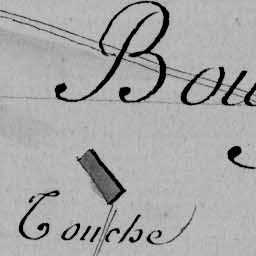 Bou
Touche